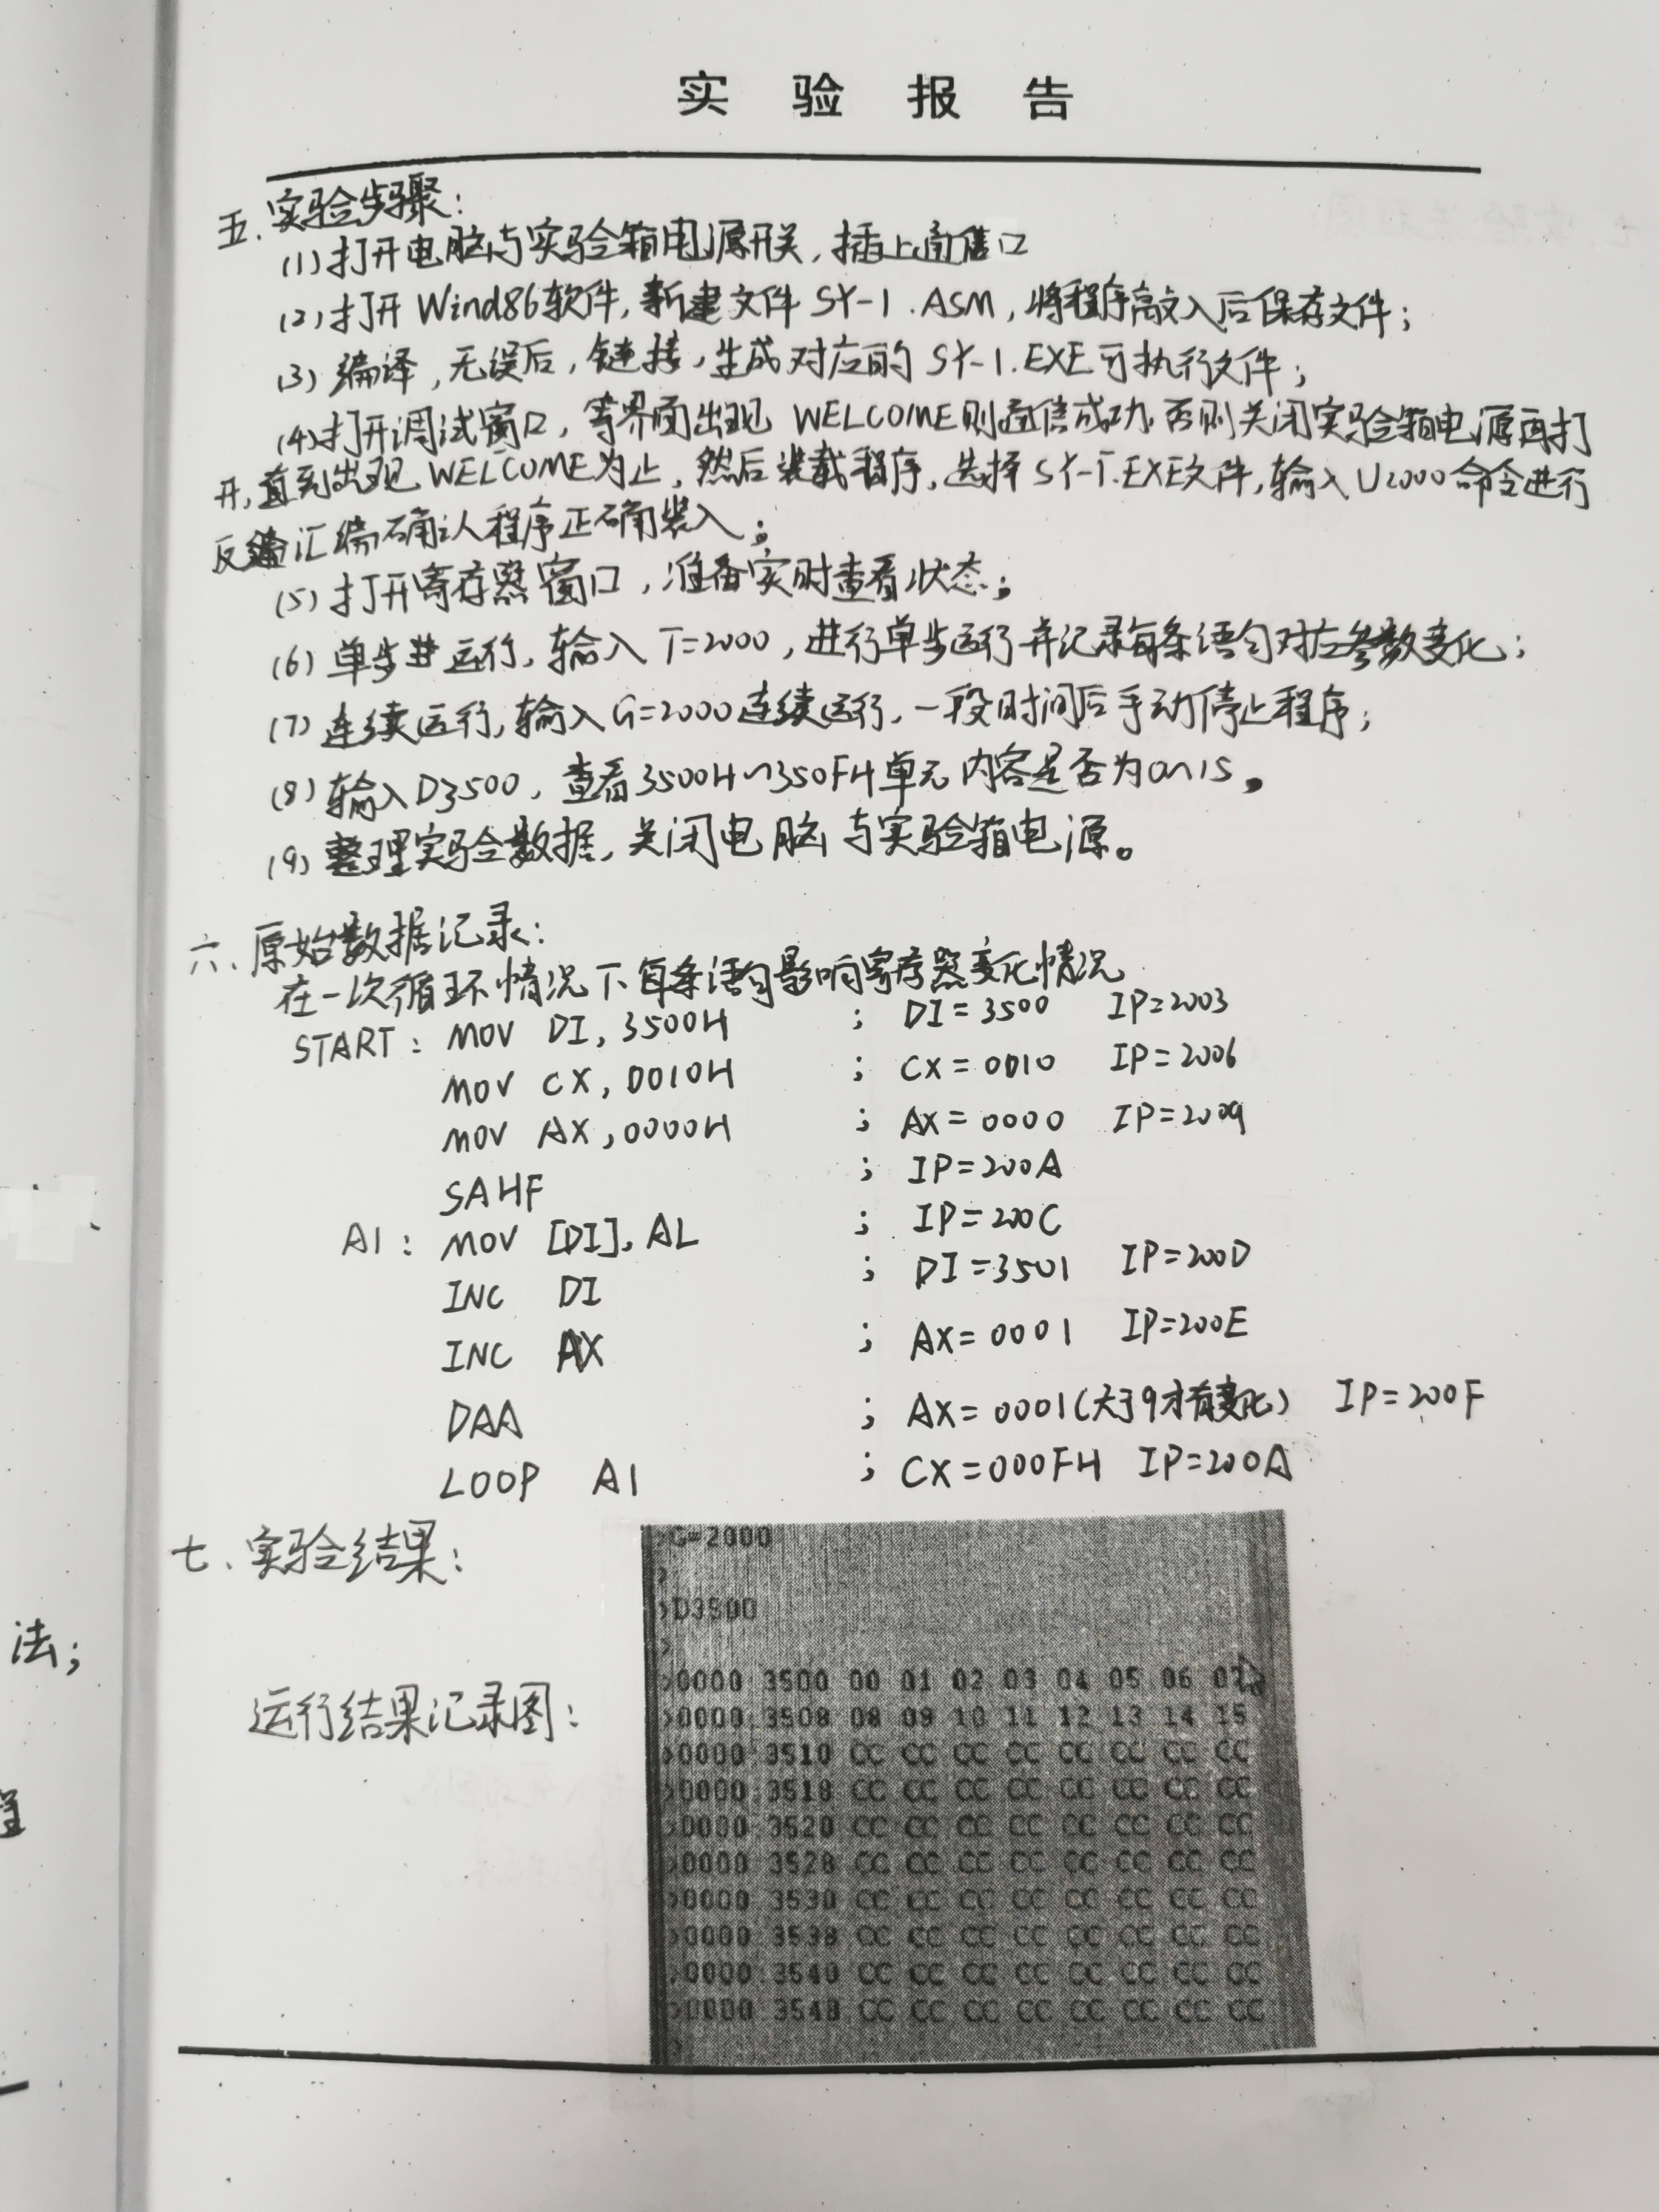 实验报告
五.实验步骤:
(1)打开电脑与实验箱电源开关,插上通信口
(2)打开Wind86软件,新建文件SY-1.ASM,将程序敲入后保存文件;
(3)编译,无误后,链接,生成对应的SY-1.EXE可执行文件;
(4)打开调试窗口,等界面出现WELCOME则通信成功.否则关闭实验箱电源再打
开,直到出现WELCOME为止,然后装载程序,选择SY-1.EXE文件,输入U2000命令进行
反汇编确认程序正确装入;
(5)打开寄存器窗口,准备实时查看状态;
(6)单步运行,输入T=2000,进行单步运行并记录每条语句对应参数变化;
(7)连续运行,输入G=2000连续运行,一段时间后手动停止程序;
(8)输入D3500,查看3500H~350FH单元内容是否为0~15。
(9)整理实验数据,关闭电脑与实验箱电源。
六、原始数据记录:
在一次循环情况下每条语句影响寄存器变化情况
START: MOV DI, 3500H ; DI=3500 IP=2003
MOV CX, 0010H ; CX=0010 IP=2006
MOV AX, 0000H ; AX=0000 IP=2009
SAHF ; IP=200A
A1: MOV [DI], AL ; IP=200C
INC DI ; DI=3501 IP=200D
INC AX ; AX=0001 IP=200E
DAA ; AX=0001(大于9才有变化) IP=200F
LOOP A1 ; CX=000FH IP=200A
七、实验结果:
运行结果记录图:
>G=2000
>
>D3500
>
>0000:3500 00 01 02 03 04 05 06 07
>0000:3508 08 09 10 11 12 13 14 15
>0000:3510 CC CC CC CC CC CC CC CC
>0000:3518 CC CC CC CC CC CC CC CC
>0000:3520 CC CC CC CC CC CC CC CC
>0000:3528 CC CC CC CC CC CC CC CC
>0000:3530 CC CC CC CC CC CC CC CC
>0000:3538 CC CC CC CC CC CC CC CC
>0000:3540 CC CC CC CC CC CC CC CC
>0000:3548 CC CC CC CC CC CC CC CC
>
法;